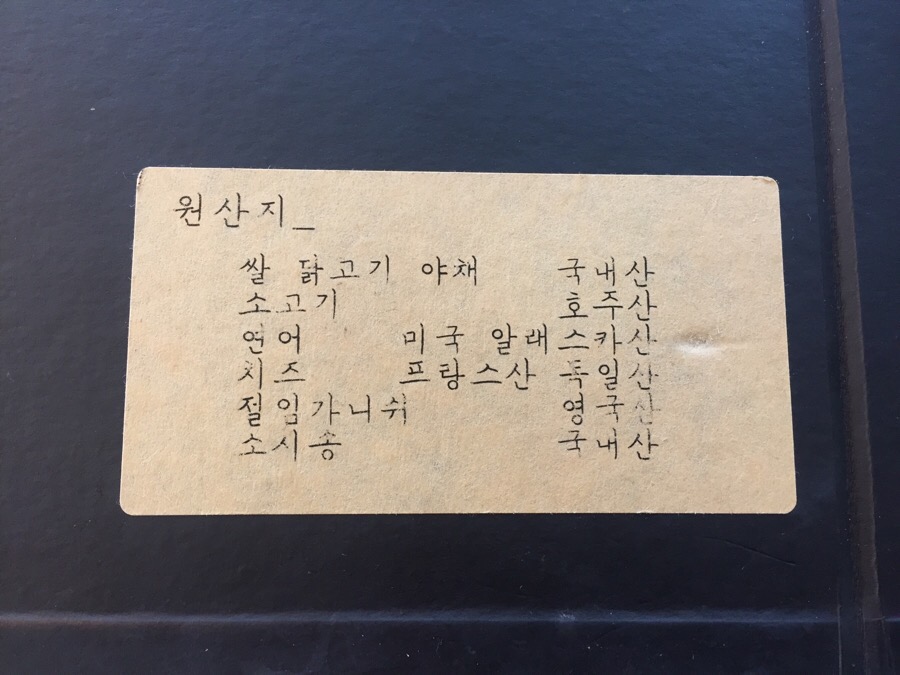 원산지_
쌀 닭고기 야채 국내산
소고기 호주산
연어 미국 알래스카산
치즈 프랑스산 독일산
절임가니쉬 영국산
소시송 국내산